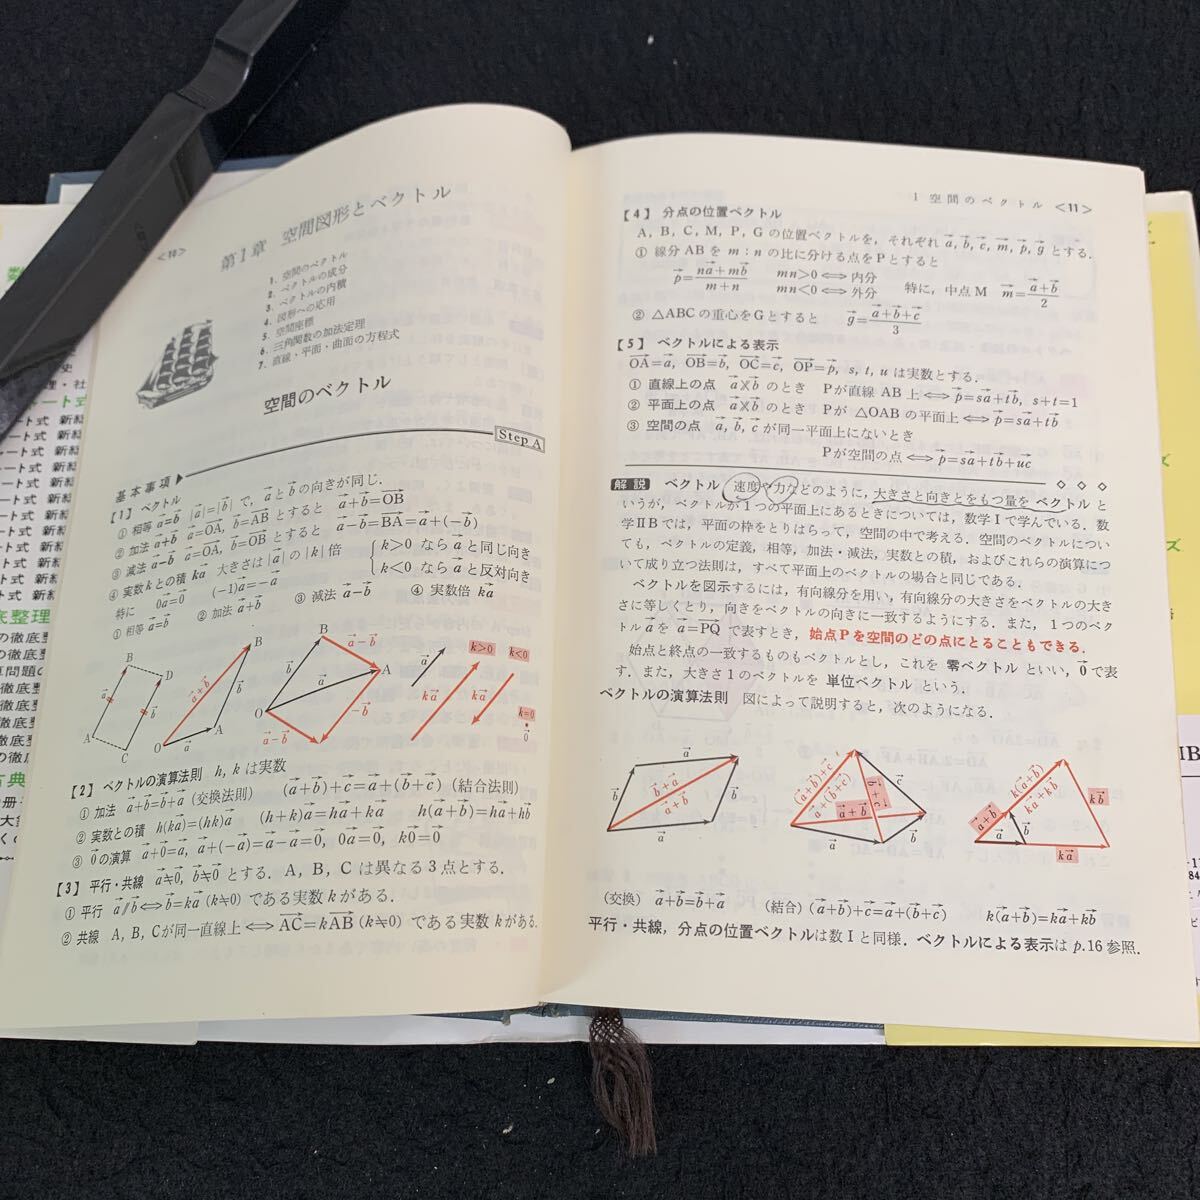 <10>
第1章 空間図形とベクトル
1. 空間のベクトル
2. ベクトルの成分
3. ベクトルの内積
4. 図形への応用
5. 空間座標
6. 三角関数の加法定理
7. 直線・平面・曲面の方程式
空間のベクトル
Step A
基本事項
【1】 ベクトル
① 相等 a⃗=b⃗ |a⃗|=|b⃗| で, a⃗とb⃗の向きが同じ.
② 加法 a⃗+b⃗ a⃗=OA⃗, b⃗=AB⃗とすると a⃗+b⃗=OB⃗
③ 減法 a⃗−b⃗ a⃗=OA⃗, b⃗=OB⃗とすると a⃗−b⃗=BA⃗=a⃗+(−b⃗)
④ 実数kとの積 ka⃗ 大きさは|a⃗|の|k|倍 k>0 なら a⃗と同じ向き
k<0 なら a⃗と反対向き
特に 0a⃗=0⃗ (−1)a⃗=−a⃗
① 相等 a⃗=b⃗ ② 加法 a⃗+b⃗ ③ 減法 a⃗−b⃗ ④ 実数倍 ka⃗
B D a⃗ b⃗ A C
B a⃗+b⃗ b⃗ A O a⃗
B a⃗−b⃗ b⃗ A a⃗ O −b⃗ a⃗−b⃗
a⃗ k>0 ka⃗ k<0 ka⃗ k=0 0⃗
【2】 ベクトルの演算法則 h, kは実数
① 加法 a⃗+b⃗=b⃗+a⃗ (交換法則) (a⃗+b⃗)+c⃗=a⃗+(b⃗+c⃗) (結合法則)
② 実数との積 h(ka⃗)=(hk)a⃗ (h+k)a⃗=ha⃗+ka⃗ h(a⃗+b⃗)=ha⃗+hb⃗
③ 0⃗の演算 a⃗+0⃗=a⃗, a⃗+(−a⃗)=a⃗−a⃗=0⃗, 0a⃗=0⃗, k0⃗=0⃗
【3】 平行・共線 a⃗≠0⃗, b⃗≠0⃗ とする. A, B, C は異なる3点とする.
① 平行 a⃗∥b⃗⇔b⃗=ka⃗ (k≠0) である実数kがある.
② 共線 A, B, Cが同一直線上⇔AC⃗=kAB⃗ (k≠0) である実数kがある.
1 空間のベクトル <11>
【4】 分点の位置ベクトル
A, B, C, M, P, G の位置ベクトルを, それぞれ a⃗, b⃗, c⃗, m⃗, p⃗, g⃗ とする.
① 線分ABを m:n の比に分ける点をPとすると
p⃗=(na⃗+mb⃗)/(m+n) mn>0⇔内分 特に, 中点M m⃗=(a⃗+b⃗)/2
mn<0⇔外分
② △ABCの重心をGとすると g⃗=(a⃗+b⃗+c⃗)/3
【5】 ベクトルによる表示
OA⃗=a⃗, OB⃗=b⃗, OC⃗=c⃗, OP⃗=p⃗, s, t, u は実数とする.
① 直線上の点 a⃗∦b⃗ のとき Pが直線AB上⇔p⃗=sa⃗+tb⃗, s+t=1
② 平面上の点 a⃗∦b⃗ のとき Pが△OABの平面上⇔p⃗=sa⃗+tb⃗
③ 空間の点 a⃗, b⃗, c⃗が同一平面上にないとき
Pが空間の点⇔p⃗=sa⃗+tb⃗+uc⃗
解説 ベクトル 速度や力などのように, 大きさと向きとをもつ量を ベクトル と
いうが, ベクトルが1つの平面上にあるときについては, 数学Ⅰで学んでいる. 数
学ⅡBでは, 平面の枠をとりはらって, 空間の中で考える. 空間のベクトルについ
ても, ベクトルの定義, 相等, 加法・減法, 実数との積, およびこれらの演算につ
いて成り立つ法則は, すべて平面上のベクトルの場合と同じである.
ベクトルを図示するには, 有向線分を用い, 有向線分の大きさをベクトルの大き
さに等しくとり, 向きをベクトルの向きに一致するようにする. また, 1つのベク
トルa⃗を a⃗=PQ⃗ で表すとき, 始点Pを空間のどの点にとることもできる.
始点と終点の一致するものもベクトルとし, これを 零ベクトル といい, 0⃗で表
す. また, 大きさ1のベクトルを 単位ベクトル という.
ベクトルの演算法則 図によって説明すると, 次のようになる.
a⃗ b⃗ b⃗+a⃗ a⃗+b⃗ b⃗ a⃗
(a⃗+b⃗)+c⃗ a⃗+(b⃗+c⃗) b⃗+c⃗ c⃗ a⃗+b⃗ b⃗ a⃗
k(a⃗+b⃗) ka⃗+kb⃗ kb⃗ a⃗+b⃗ b⃗ a⃗ ka⃗
(交換) a⃗+b⃗=b⃗+a⃗ (結合) (a⃗+b⃗)+c⃗=a⃗+(b⃗+c⃗) k(a⃗+b⃗)=ka⃗+kb⃗
平行・共線, 分点の位置ベクトルは数Ⅰと同様. ベクトルによる表示は p.16 参照.